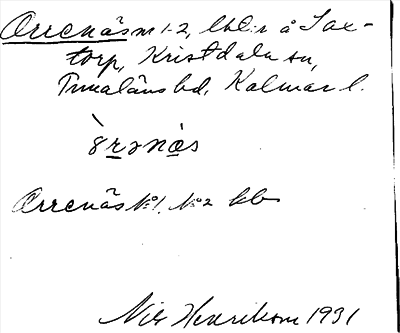 Orrenäs nr 1-2, lhl:r å Sax-
torp, Kristdala sn,
Tunaläns hd, Kalmar l.
`8rənäs
Orrenäs No 1, No 2 kb
Nils Henrikson 1931